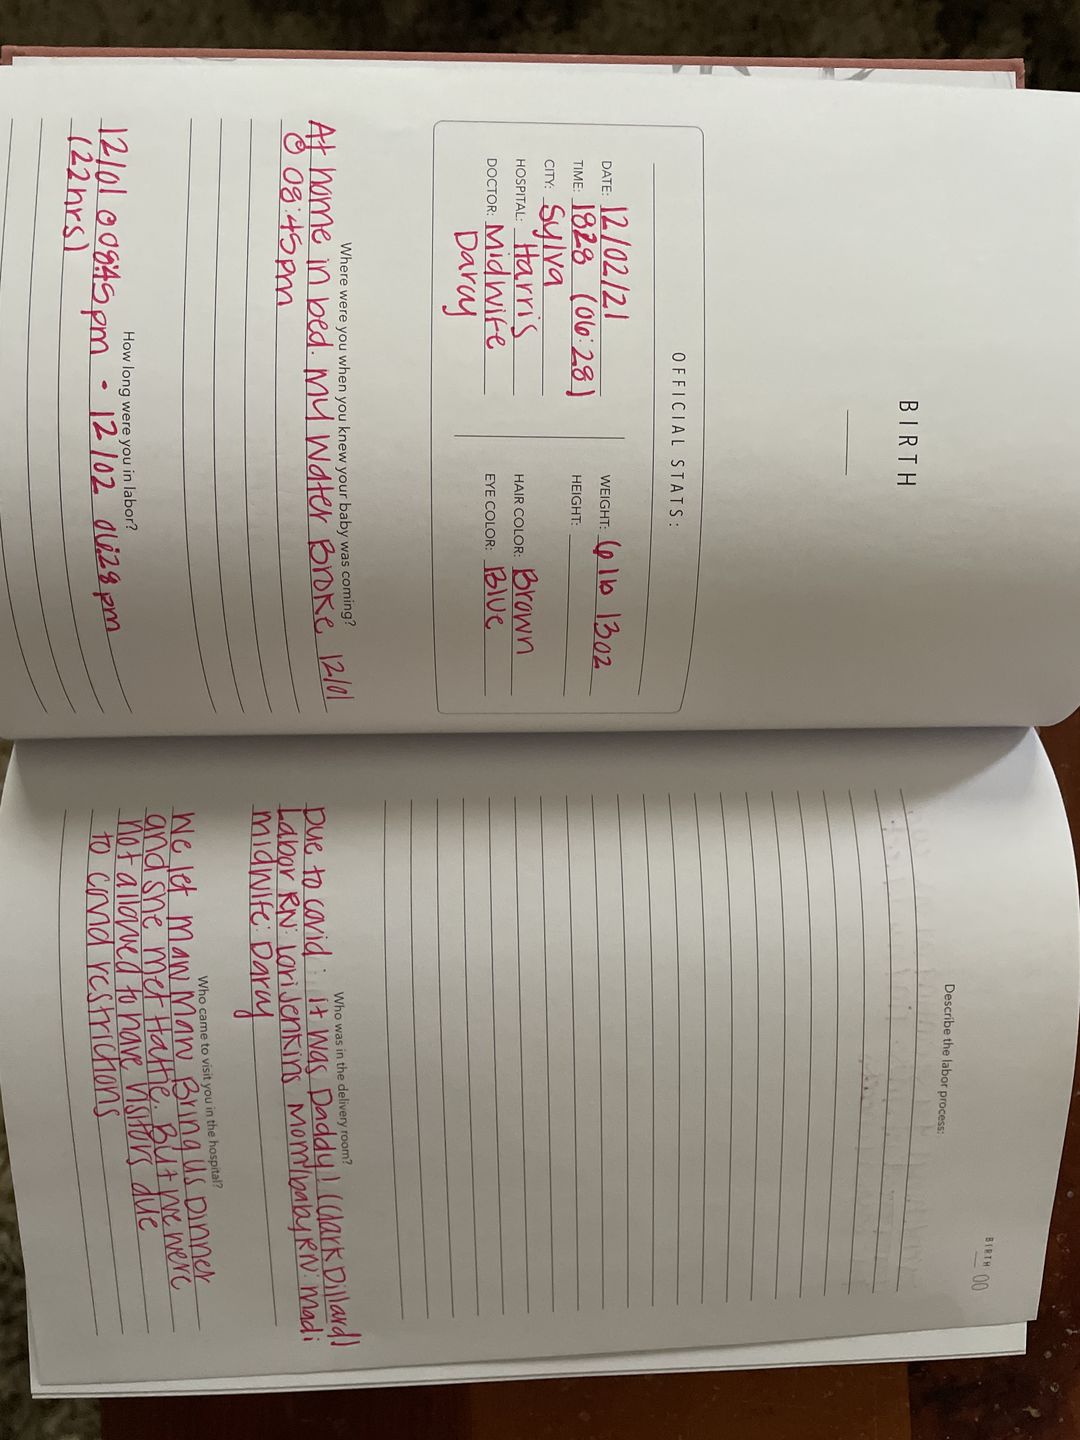 BIRTH
OFFICIAL STATS:
DATE: 12/02/21
TIME: 1828 (06:28)
CITY: Sylva
HOSPITAL: Harris
DOCTOR: Midwife
Darcy
WEIGHT: 6 lb 13oz
HEIGHT:
HAIR COLOR: Brown
EYE COLOR: Blue
Where were you when you knew your baby was coming?
At home in bed. My water Broke 12/01
@ 08:45pm
How long were you in labor?
12/01 @ 0845pm - 12/02 06:28pm
(22hrs)
BIRTH 00
Describe the labor process:
Who was in the delivery room?
Due to covid: it was Daddy! (Clark Dillard)
Labor RN: Lori Jenkins Mom/baby RN: Madi
midwife: Darcy
Who came to visit you in the hospital?
We let Maw Maw Bring us Dinner
and she met Hattie. But we were
not allowed to have visitors due
to covid restrictions